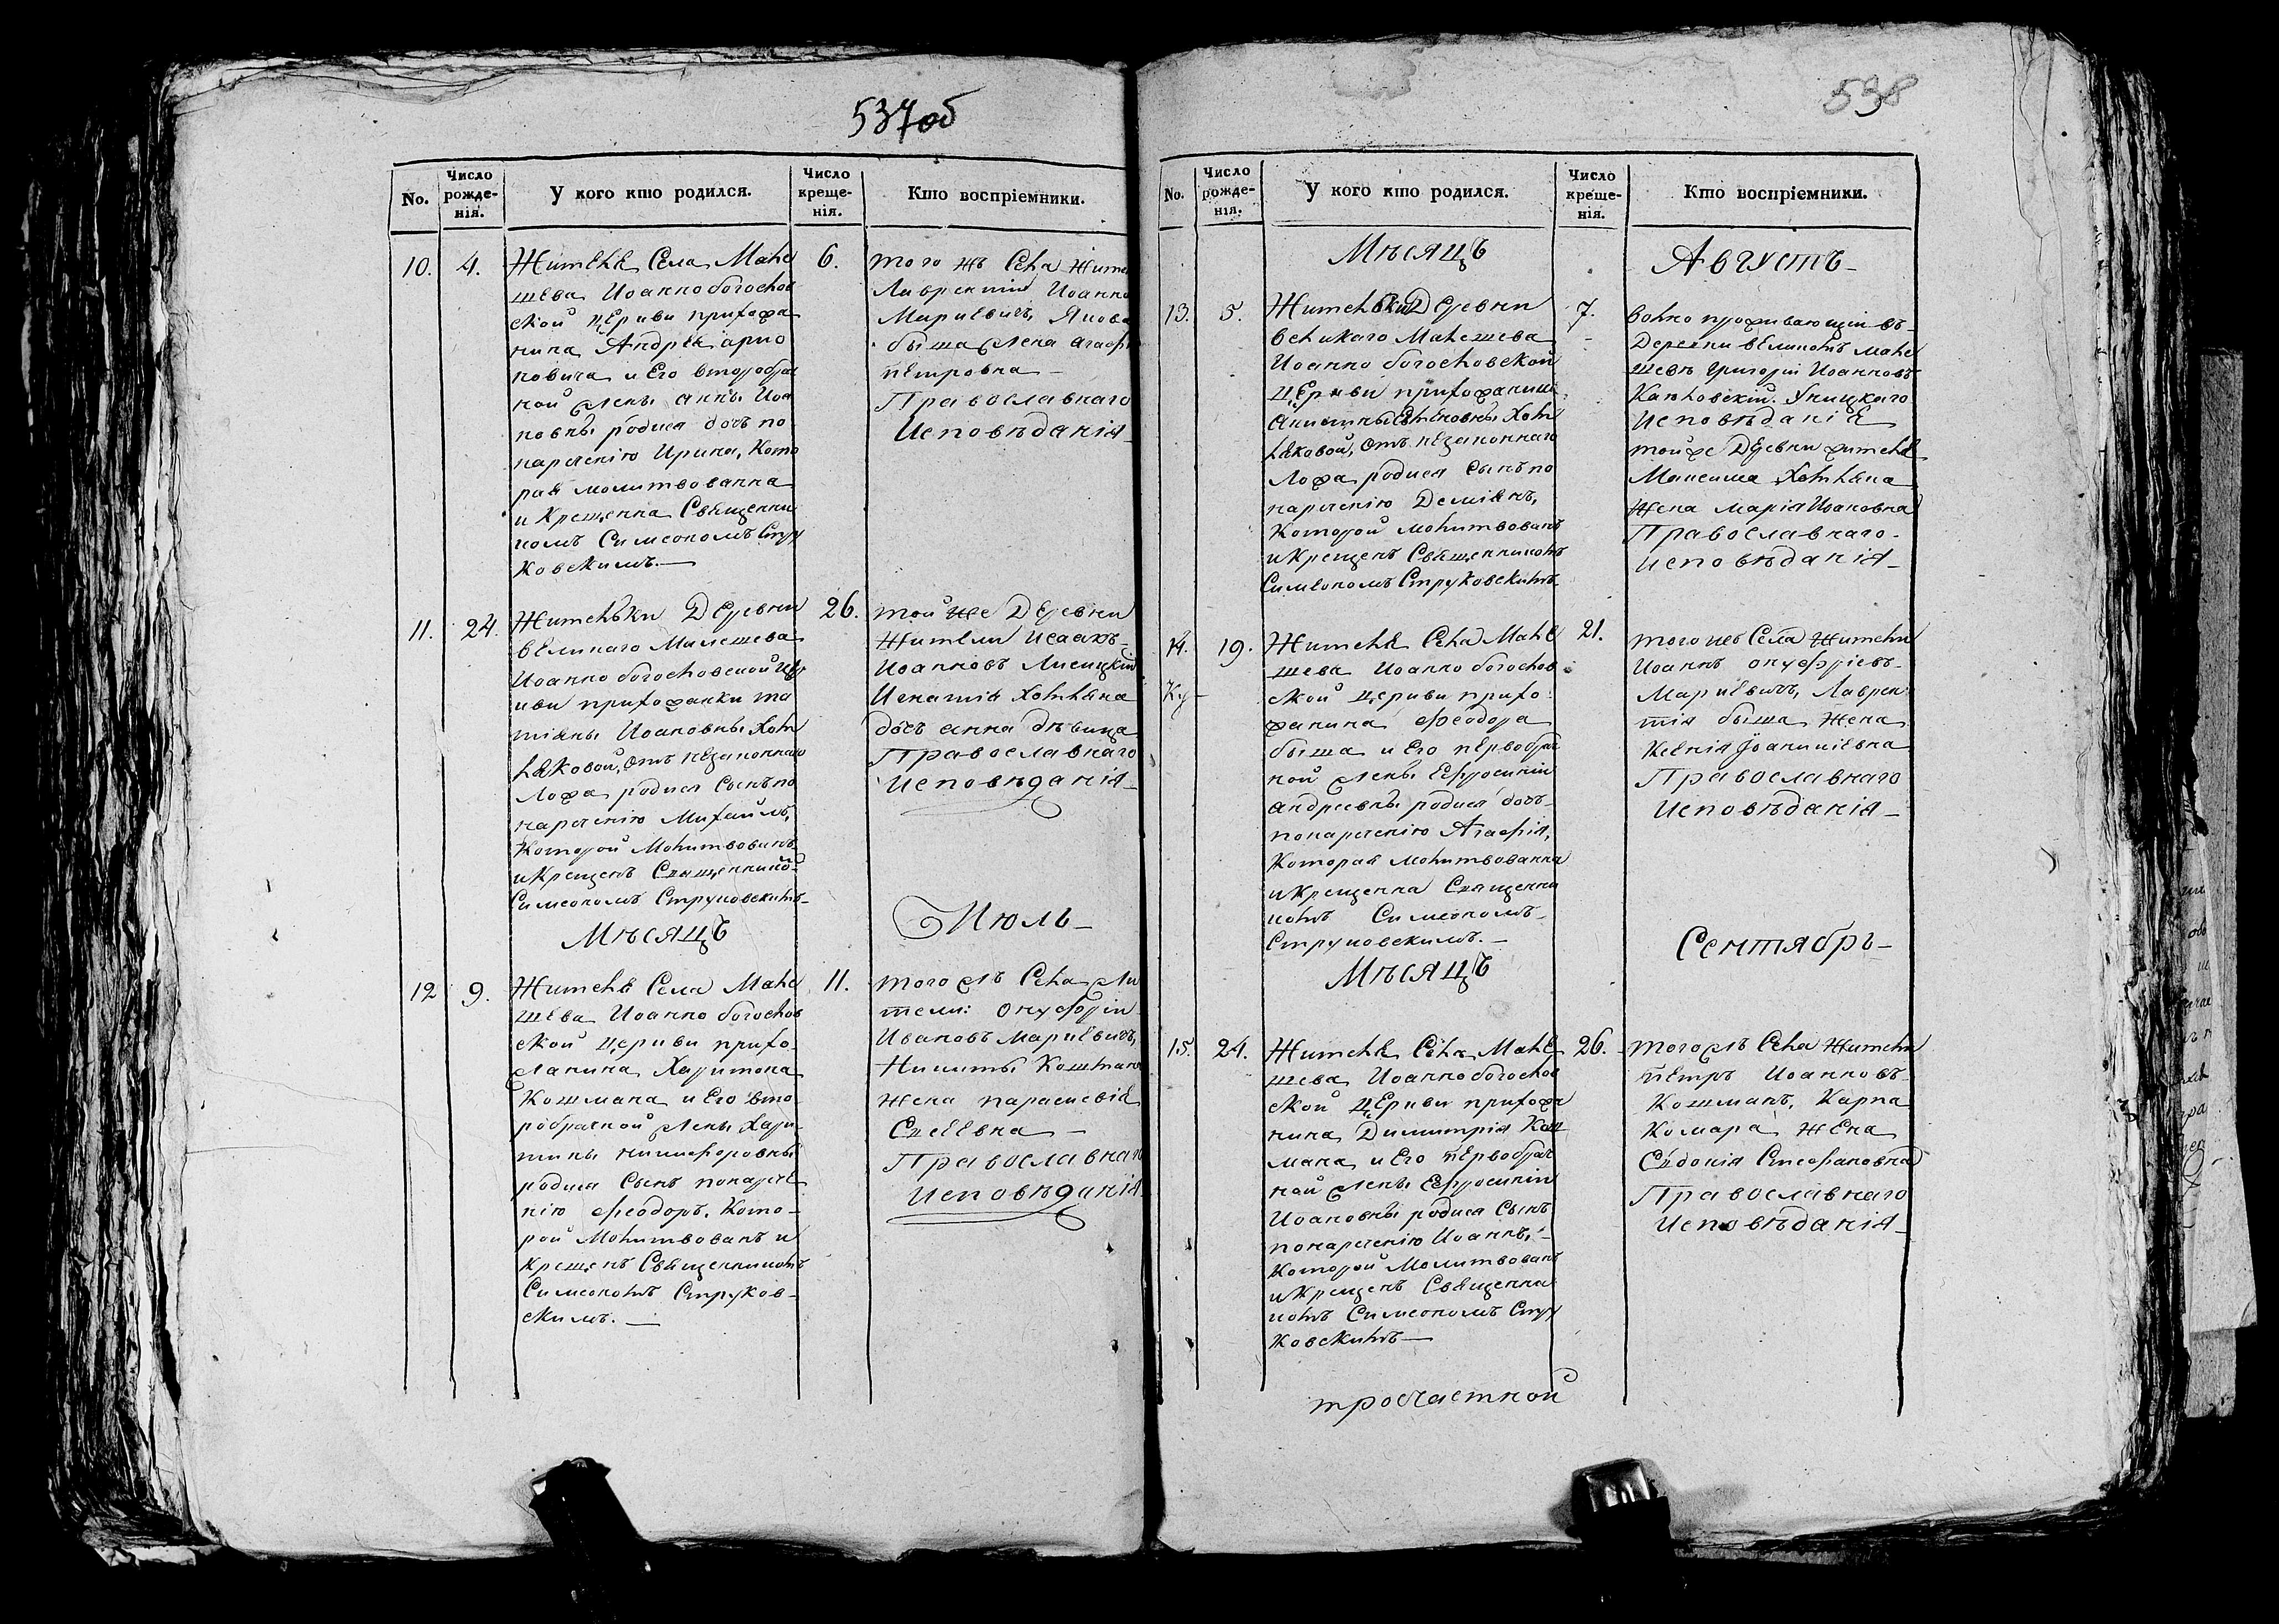 537об
No.
Число рожде-нія.
У кого кто родился.
Число креще-нія.
Кто воспріемники.
10.
4.
Жителя Села Мале
шева Иоаннобогослов
ской церкви прихожа
нина Андрея
повича и Его второбрач
ной жены анны Иоа
новны родися дочь по
наречению Ирина, Кото
рая молитвованна
и Крещенна Священни
комъ Симеономъ Стру
ковскимъ.—
6.
того жъ Села жите
Лаврентий Иоанно
Маркевичъ, Якова
быша жена агаф
петровна —
Православнаго
Исповѣданія
11.
24.
Жительки Деревни
великаго Малешева
Иоаннобогословской цер
кви прихожанки та
тіяны Иоановны Хом
ляковой, отъ незаконнаго
Ложа родися Сынъ по
наречению Михаилъ,
Которой Молитвованъ
и Крещенъ Священнико
Симеономъ Струковскимъ
26.
той же Деревни
Жители Исаакъ
Иоанновъ Лисицкій
Игнатія Хомляка
дочь анна дѣвица
Православнаго
Исповѣданія
Мѣсяцъ
Июль
12
9.
Жителя Села Мале
шева Иоаннобогослов
ской церкви прихо
жанина Харитона
Кошмана и Его вто
робрачной жены Хари
тины никифоровны
родися Сынъ по нарече
нію феодоръ. Кото-
рой Молитвованъ и
крещенъ Священникомъ
Симеономъ Струков-
скимъ. —
11.
того жъ Села жи
тели: онуфрій
Ивановъ Маркевичъ,
Никиты Кошмана
жена параскевія
—
Православнаго
Исповѣданія
538
No.
Число рожде-нія.
У кого кто родился.
Число креще-нія.
Кто воспріемники.
Мѣсяцъ
Августъ
13.
5.
Жительки Деревни
великаго Малешева
Иоаннобогословской
церкви прихожанки
Хом
ляковой, отъ незаконнаго
Ложа родися Сынъ по
наречению Деміянъ,
Которой молитвованъ
и Крещенъ Священникомъ
Симеономъ Струковскимъ
7.
волно проживающій въ
Деревни великомъ мале
шевѣ Григорій Иоанновъ
Уницкаго
Исповѣданіе
той же Деревни жителя
Максима Хомляка
Жена Марія Иоановна
Православнаго
исповѣданія
14.
Ку-
19.
Жителя Села Мале
шева Иоаннобогослов
ской церкви прихо
жанина феодора
быша и Его первобрач
ной жены Ефросиніи
андреевны родися дочь
по наречению Агафія,
Которая Молитвованна
и Крещенна Священни
комъ Симеономъ
Струковскимъ. —
21.
того жъ Села жители
Иоаннъ онуфріевъ
Маркевичъ, Лаврен
тія быша Жена
Ксенія Іоаникіевна
Православнаго
Исповѣданія
Мѣсяцъ
Сентябрь
15.
24.
Жителя Села Мале
шева Иоаннобогослов
ской церкви прихожа
нина Димитрія Кош
мана и Его первобрач
ной жены Ефросиніи
Иоановны родися Сынъ
по наречению Иоаннъ,
Которой Молитвованъ
и Крещенъ Священни
комъ Симеономъ Стру
ковскимъ —
26.
того жъ Села жители
петръ Иоанновъ
Кошманъ, Карпа
Комара Жена
Євдокія Стефановна
Православнаго
Исповѣданія